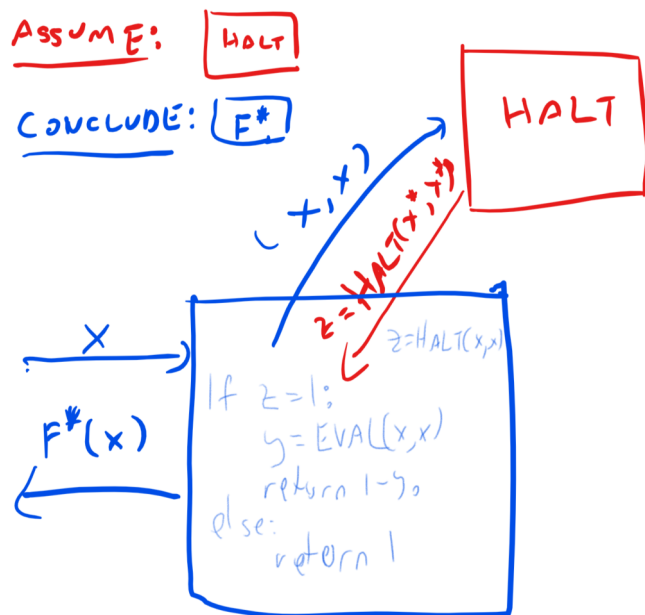 ASSUME: HALT
CONCLUDE: F*
HALT
(x,x)
z=HALT(x*,x*)
x
F*(x)
z=HALT(x,x)
If z=1:
y=EVAL(x,x)
return 1-y,
else:
return 1